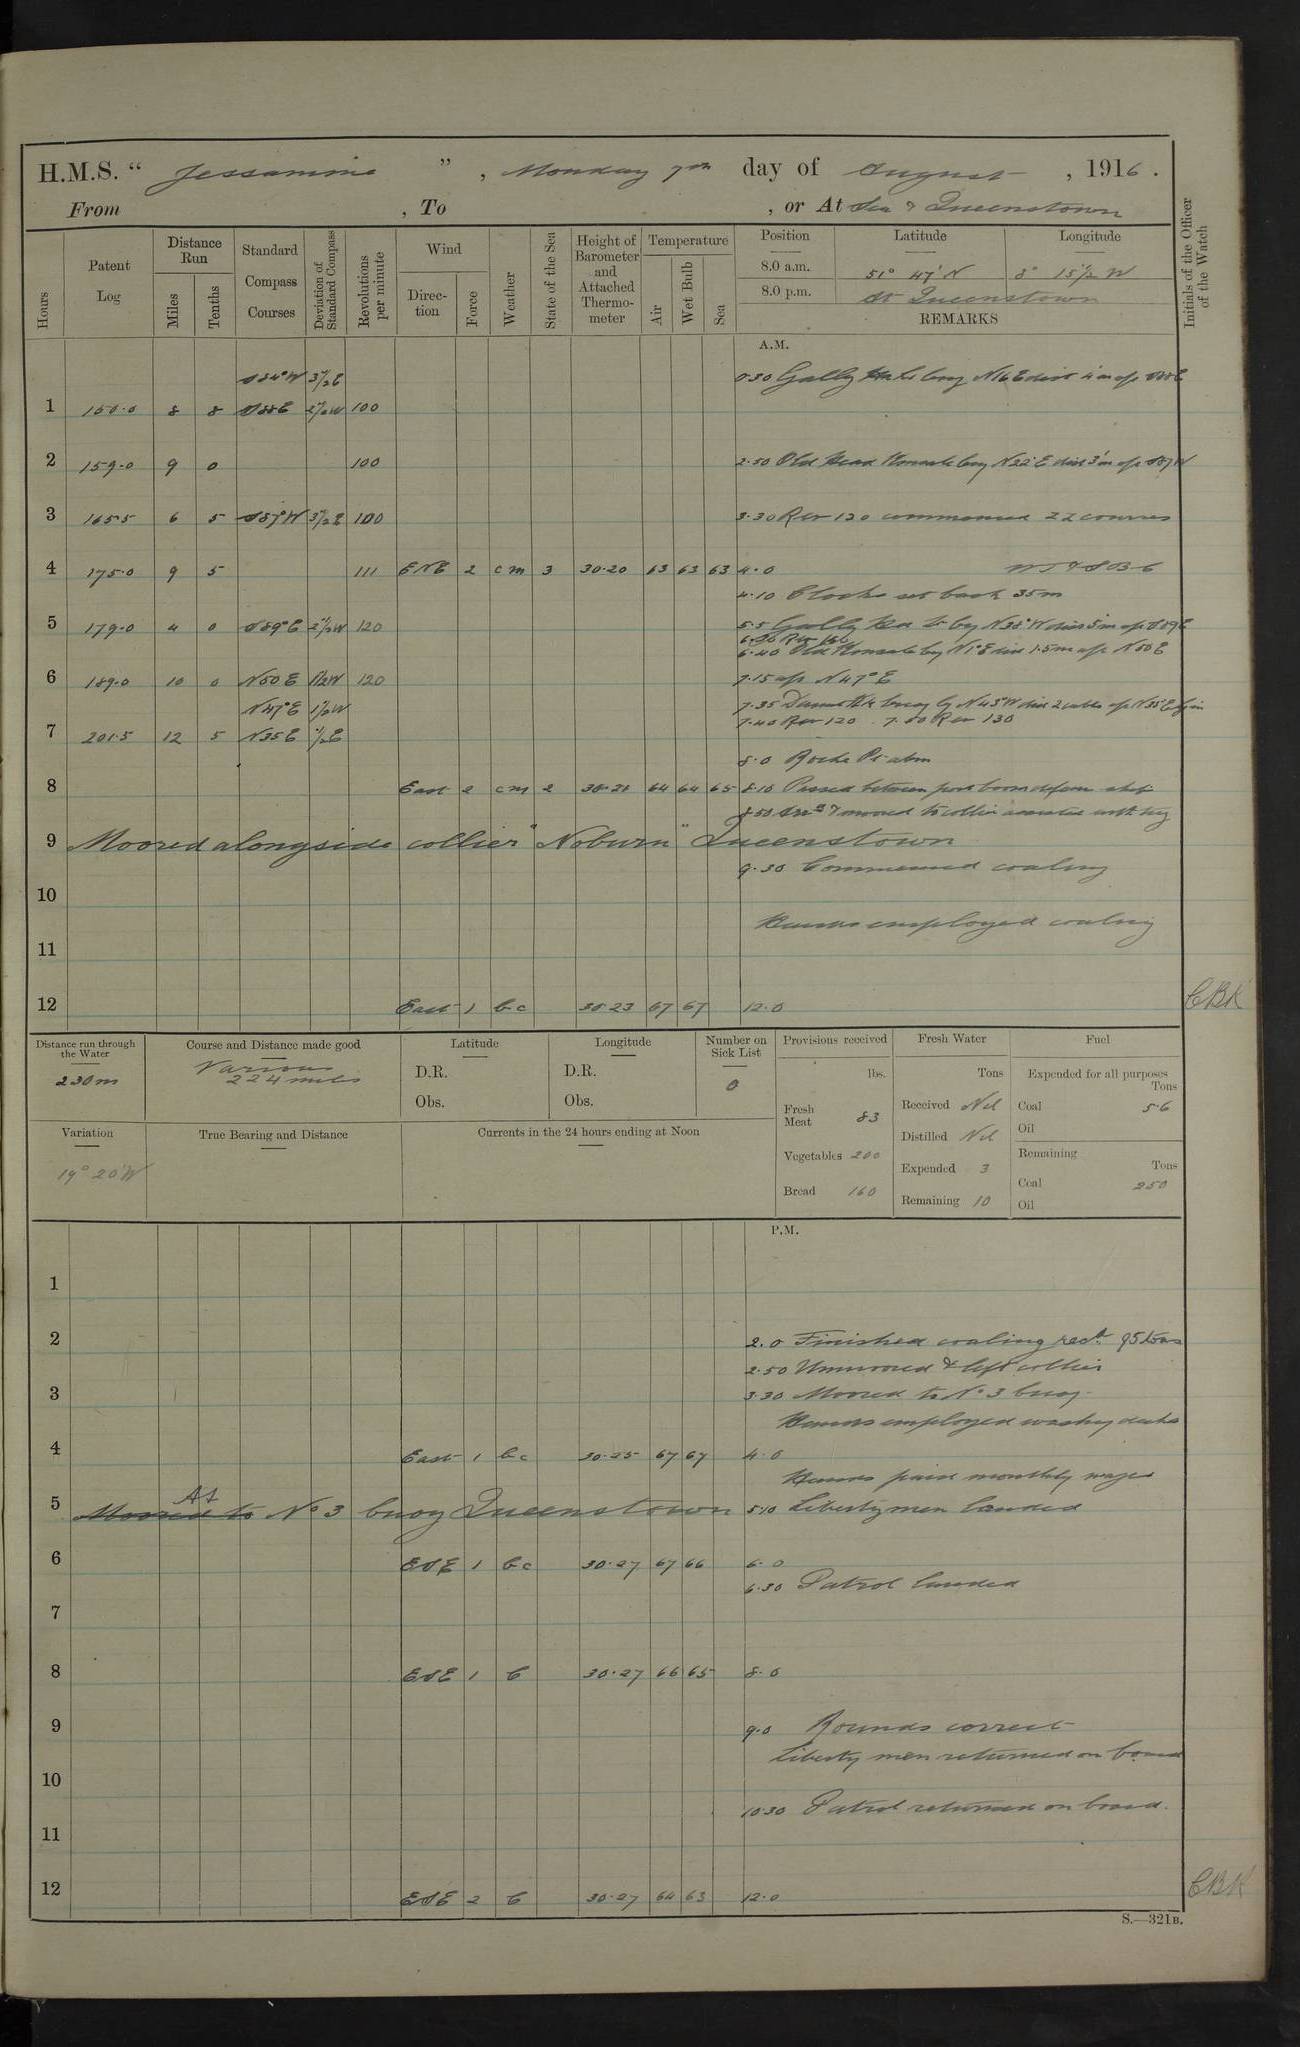 H.M.S. " Jessamine ", Monday 7th day of August, 1916.
From , To , or At Sea & Queenstown
Hours
Patent Log
Distance Run
Miles
Tenths
Standard Compass Courses
Deviation of Standard Compass
Revolutions per minute
Wind
Direction
Force
Weather
State of the Sea
Height of Barometer and Attached Thermometer
Temperature
Air
Wet Bulb
Sea
Position
Latitude
Longitude
Initials of the Officer of the Watch
8.0 a.m. 51° 47' N 8° 15½ W
8.0 p.m. At Queenstown
REMARKS
A.M.
S84°W 3½E
0.30 Gally Head brg N16E dist
1 150.0 8 8 S88E 2½W 100
2 159.0 9 0 100 2.50 Old Head Kinsale brg N22°E dist 3'm a/c S87W
3 165.5 6 5 S87°W 3½E 100 3.30 Rev 120 commenced ZZ courses
4 175.0 9 5 111 ENE 2 cm 3 30.20 63 63 63 4.0
4.10 Clocks set back 35m
5 179.0 4 0 S89°E 2½W 120 5.5 Gally Hd Lt brg N38°W dist 5'm a/c S89E
6.30 Rev 130
6.40 Old Kinsale brg N1°E dist 1.5m a/c N50E
6 189.0 10 0 N50E 1½W 120 7.15 a/c N47°E
N47°E 1½W
7.35 Daunt Rk buoy brg N43°W dist 2 cables a/c N35E
7.40 Rev 120 7.50 Rev 130
7 201.5 12 5 N35E ½E
8.0 Roche Pt abm
8 East 2 cm 2 30.21 64 64 65 8.10 Passed between port boom defence ships
8.50 Arrd & moored to collier assisted with tug
9 Moored alongside collier "Noburn" Queenstown
9.30 Commenced coaling
10
Hands employed coaling
11
12 East 1 bc 30.23 67 67 12.0 CBK
Distance run through the Water
230m
Course and Distance made good
Various
224 miles
Latitude
D.R.
Obs.
Longitude
D.R.
Obs.
Number on Sick List
0
Provisions received
lbs.
Fresh Meat 83
Vegetables 200
Bread 160
Fresh Water
Tons
Received Nil
Distilled Nil
Expended 3
Remaining 10
Fuel
Expended for all purposes
Tons
Coal 56
Oil
Remaining
Tons
Coal 250
Oil
Variation
19° 20'W
True Bearing and Distance
Currents in the 24 hours ending at Noon
P.M.
1
2 2.0 Finished coaling recd. 95 tons
2.50 Unmoored & left collier
3 3.30 Moored to No 3 buoy
Hands employed washing decks
4 East 1 bc 30.25 67 67 4.0
Hands paid monthly wages
At
5 Moored to No 3 buoy Queenstown 5.10 Liberty men landed
6 ESE 1 bc 30.27 67 66 6.0
6.30 Patrol landed
7
8 ESE 1 C 30.27 66 65 8.0
9 9.0 Rounds correct
Liberty men returned on board
10
10.30 Patrol returned on board.
11
12 ESE 2 C 30.27 64 63 12.0 CBK
S.—321B.